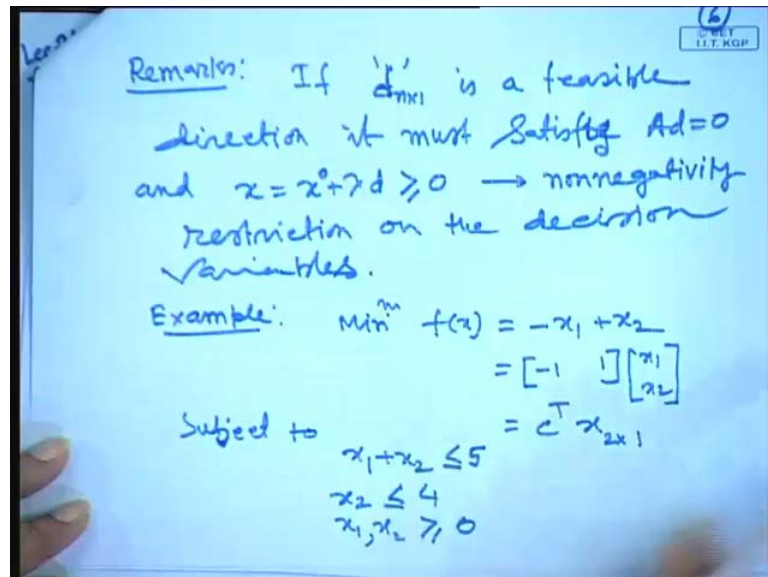 6
© CET
I.I.T. KGP
Remarks: If 'd'nx1 is a feasible
direction it must satisfy Ad=0
and x = x⁰+λd ≥ 0 → nonnegativity
restriction on the decision
variables.
Example: Minᵐ f(x) = -x₁ + x₂
= [-1 1] [x₁ x₂]
Subject to = cᵀ x₂ₓ₁
x₁+x₂ ≤ 5
x₂ ≤ 4
x₁, x₂ ≥ 0